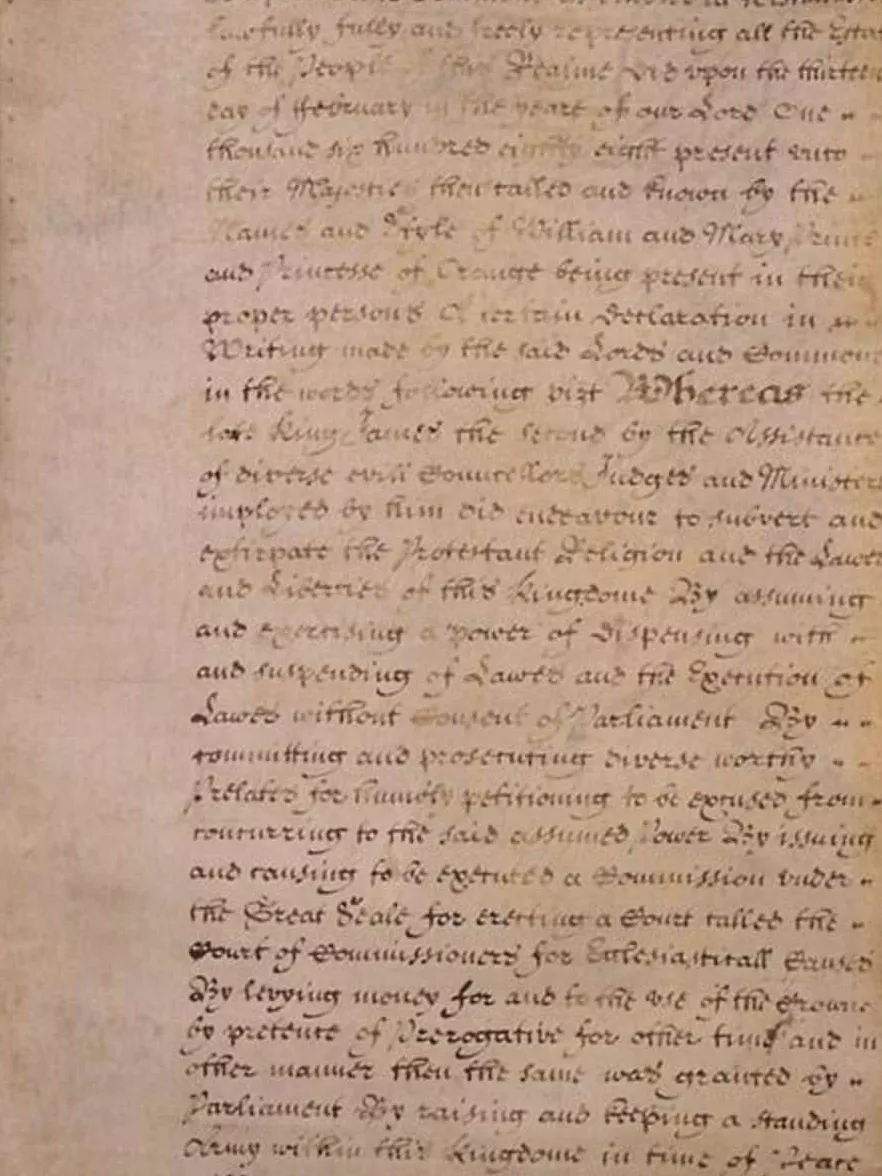 lawfully fully and freely representing all the Estat
of the People of this Realme did vpon the thirteen
day of ffebruary in the yeare of our Lord One
thousand six hundred eighty eight present vnto
their Majesties then called and known by the
Names and Style of William and Mary Prince
and Princesse of Orange being present in their
proper persons A certain Declaration in
Writing made by the said Lords and Commons
in the words following vizt Whereas the
late King James the second by the Assistance
of diverse evill Councellors Judges and Ministers
imployed by him did endeavour to subvert and
extirpate the Protestant Religion and the Lawes
and Liberties of this Kingdome By assuming
and exercising a power of dispensing with
and suspending of Lawes and the Execution of
Lawes without Consent of Parliament By
committing and prosecuting diverse worthy
Prelates for humbly petitioning to be excused from
concurring to the said assumed Power By issuing
and causing to be executed a Commission vnder
the Great Seale for erecting a Court called the
Court of Commissioners for Ecclesiasticall Causes
By levying money for and to the vse of the Crowne
by pretence of Prerogative for other time and in
other manner then the same was granted by
Parliament By raising and keeping a standing
Army within this Kingdome in time of Peace